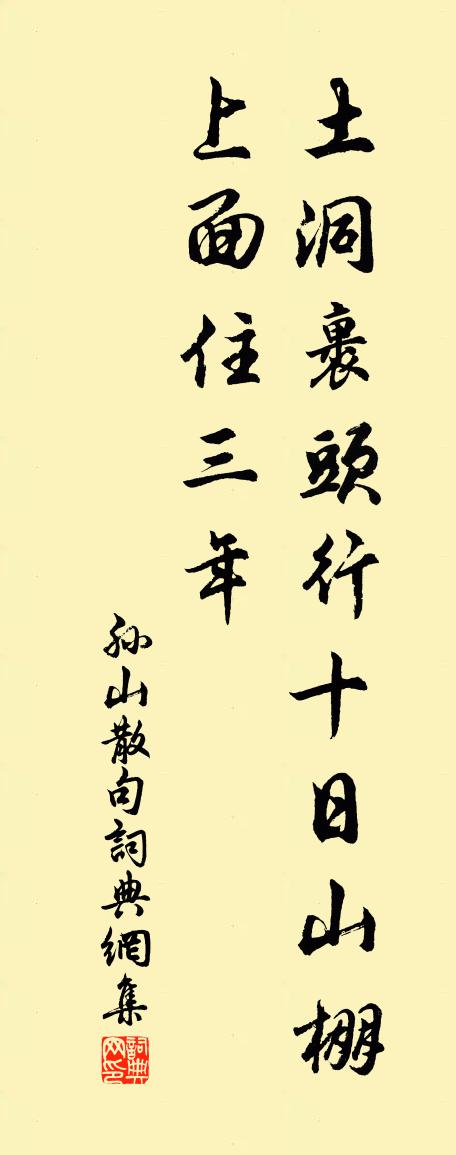 土洞裹頭行十日山棚
上面住三年
孙山散句詞典網集
詞典网印